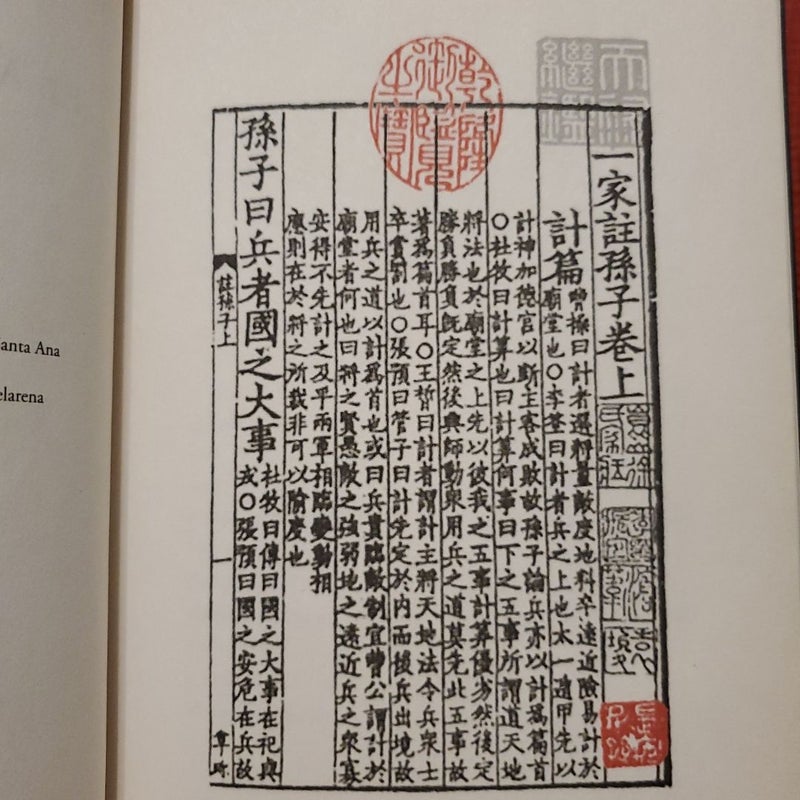 anta Ana
elarena
天祿繼鑑
乾隆御覽之寶
一家註孫子卷上
計篇
曹操曰計者選將量敵度地料卒遠近險易計於
廟堂也〇李筌曰計者兵之上也太一遁甲先以
計神加德宮以斷主客成敗故孫子論兵亦以計爲篇首
〇杜牧曰計算也曰計算何事曰下之五事所謂道天地
將法也於廟堂之上先以彼我之五事計算優劣然後定
勝負勝負既定然後興師動衆用兵之道莫先此五事故
著爲篇首耳〇王晳曰計者謂計主將天地法令兵衆士
卒賞罰也〇張預曰管子曰計先定於内而後兵出境故
用兵之道以計爲首也或曰兵貴臨敵制宜曹公謂計於
廟堂者何也曰將之賢愚敵之強弱地之遠近兵之衆寡
安得不先計之及乎兩軍相臨變動相
應則在於將之所裁非可以隃度也
孫子曰兵者國之大事
杜牧曰傳曰國之大事在祀與
戎〇張預曰國之安危在兵故
註孫子上
一